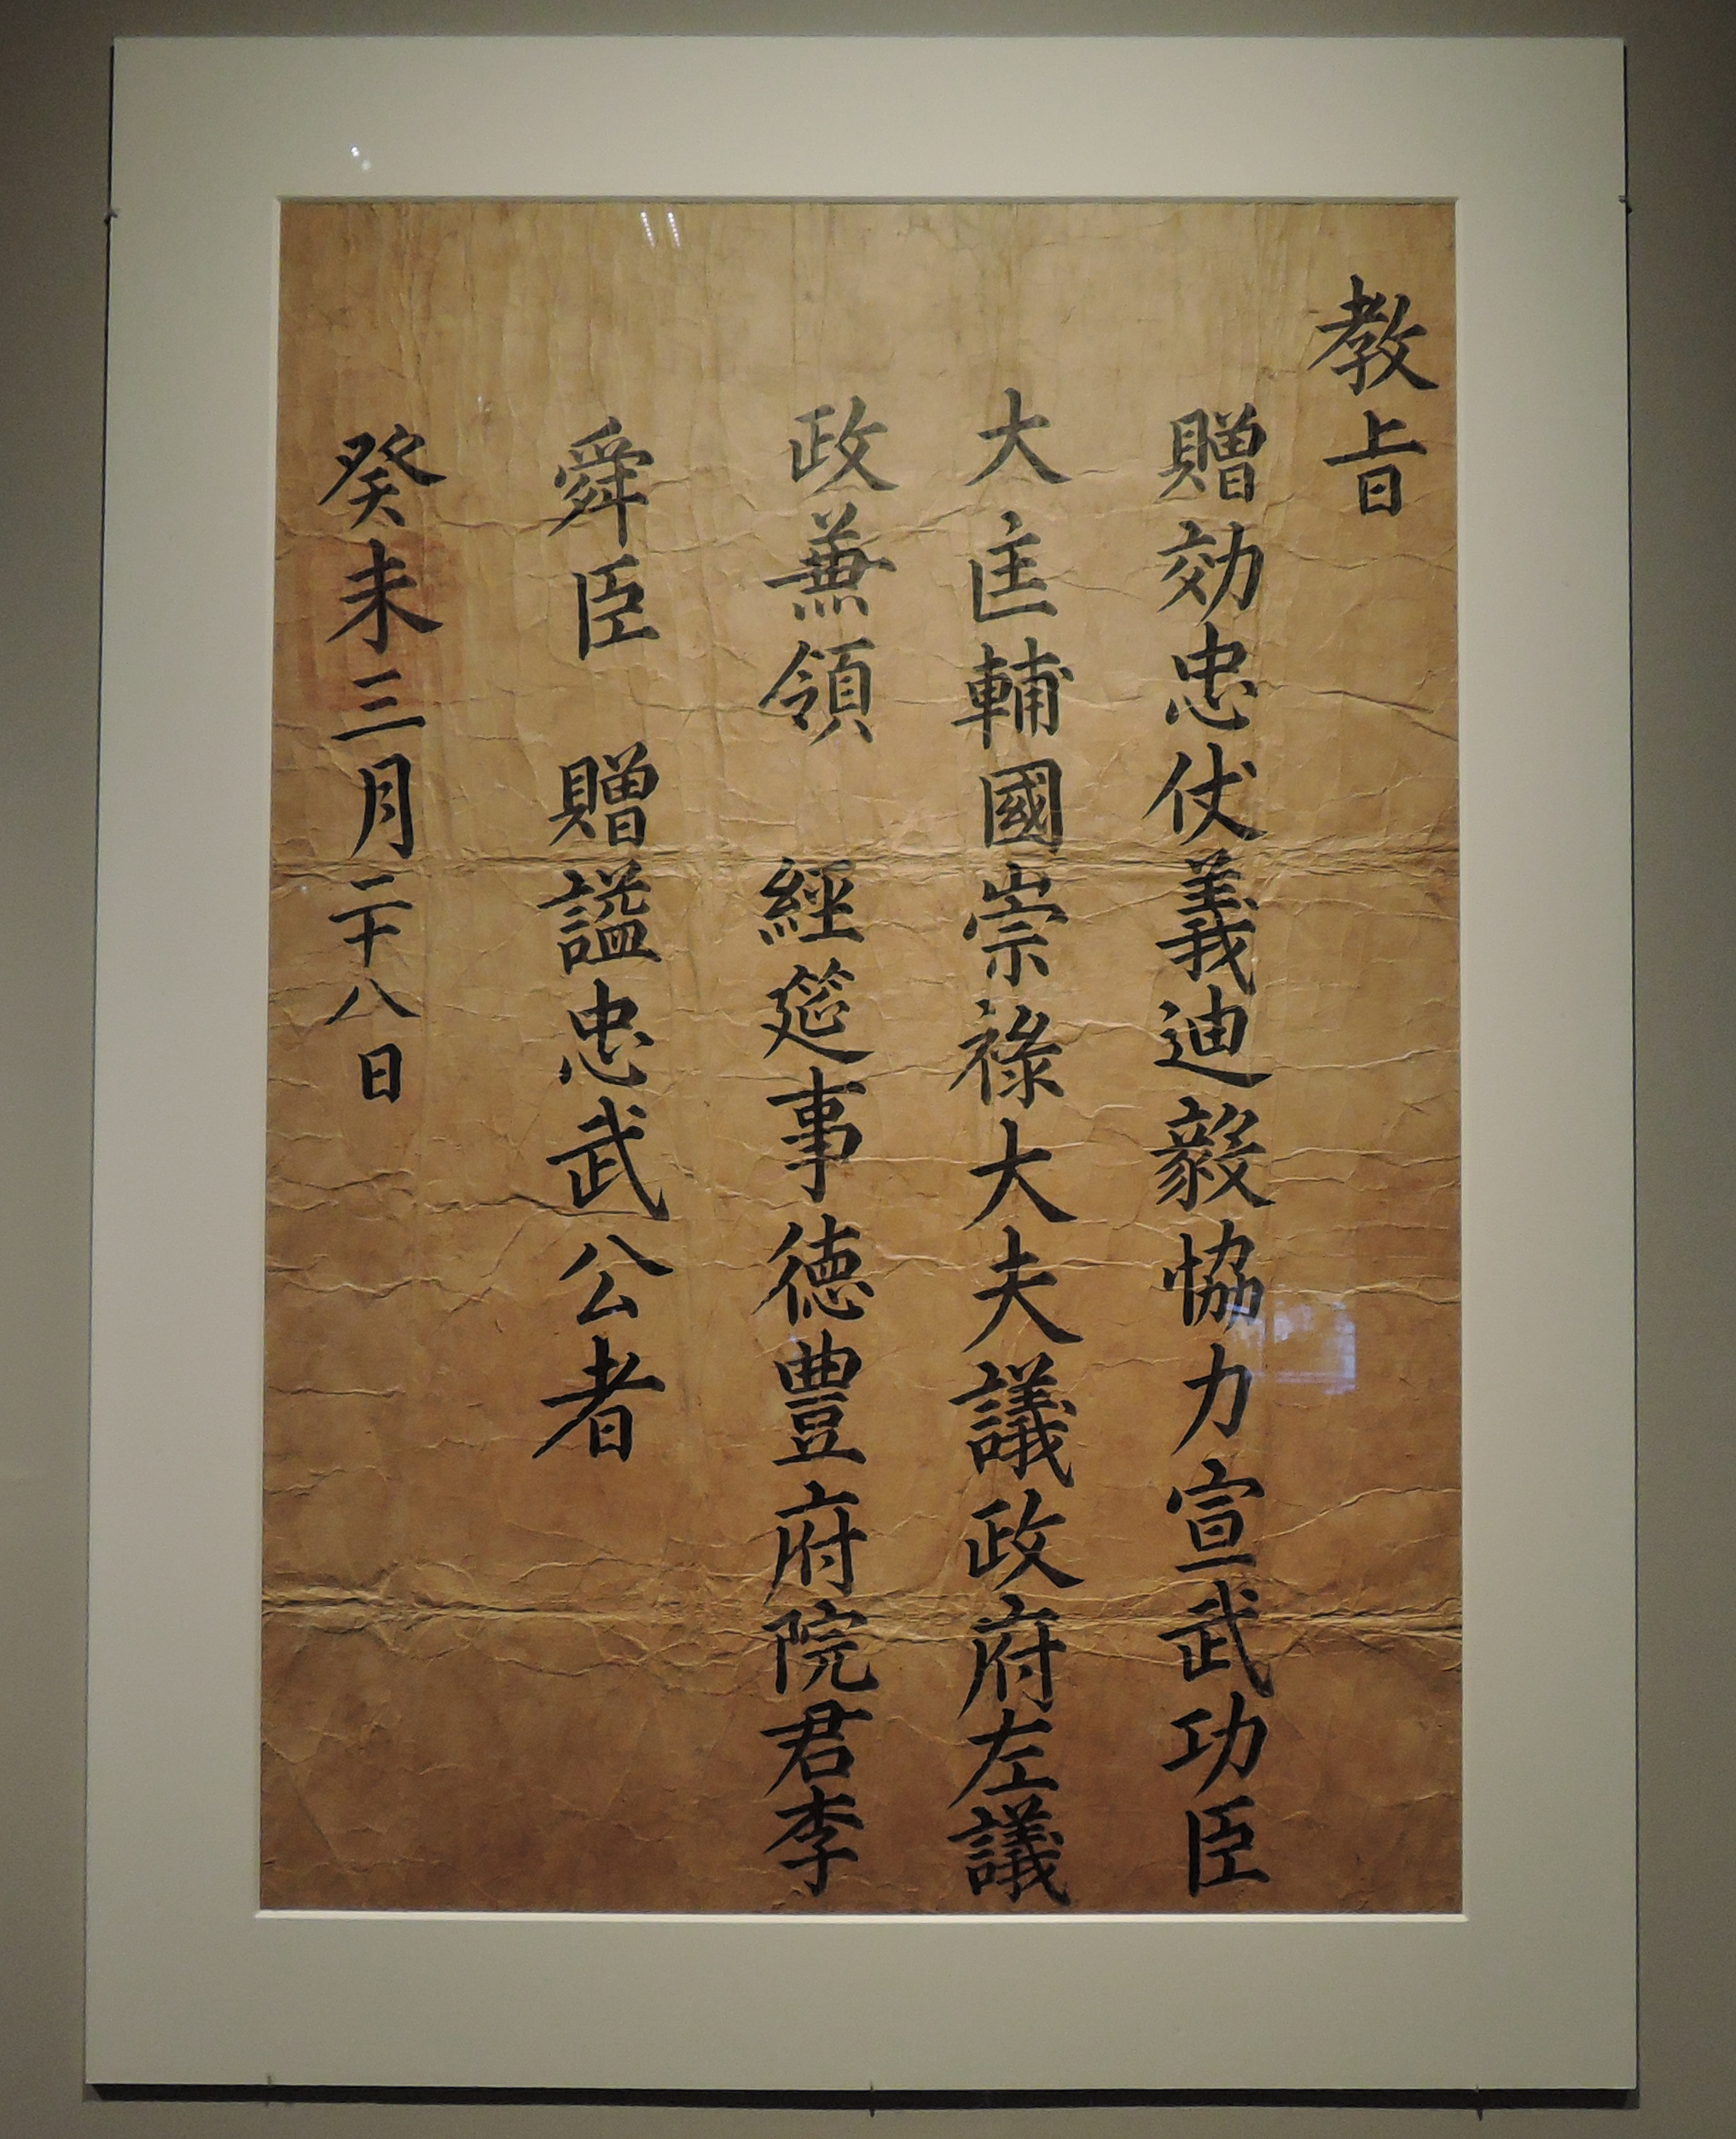 教旨
贈効忠仗義迪毅協力宣武功臣
大匡輔國崇祿大夫議政府左議
政兼領 經筵事德豊府院君李
舜臣 贈謚忠武公者
癸未三月二十八日